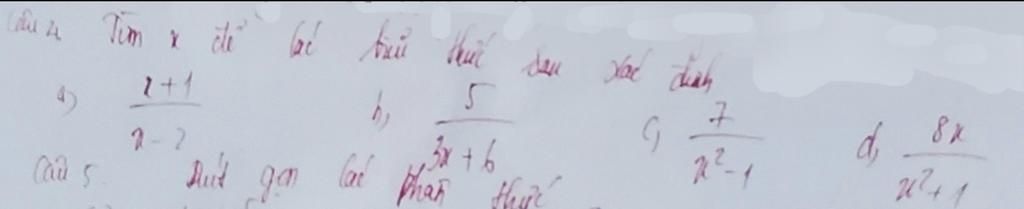 Câu 4. Tìm x để các biểu thức sau xác định
a) (x+1)/(x-2) b, 5/(3x+6) c, 7/(x²-1) d, 8x/(x²+1)
Câu 5. Rút gọn các phân thức